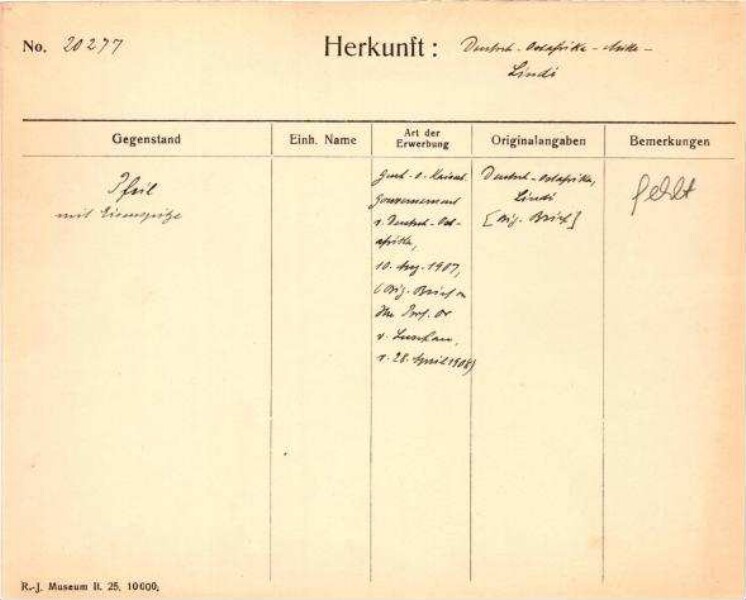 No. 20277
Herkunft: Deutsch-Ostafrika-Küste-
Lindi
Gegenstand
Einh. Name
Art der
Erwerbung
Originalangaben
Bemerkungen
Pfeil
mit Eisenspitze
Gesch. v. Kaiserl.
Gouvernement
v. Deutsch-Ost-
afrika,
10. Aug. 1907,
(Orig. Brief v.
Hn. Prof. Dr
v. Luschan,
v. 28. April 1908)
Deutsch-Ostafrika,
Lindi
[Orig. Brief]
fehlt
R.-J. Museum II. 25. 10000.